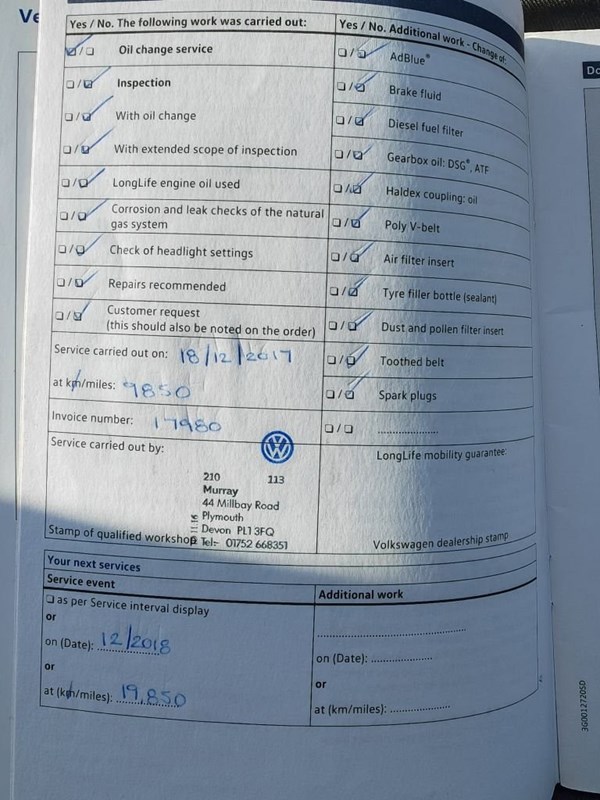 Ve
Yes / No. The following work was carried out:
Oil change service
Inspection
With oil change
With extended scope of inspection
LongLife engine oil used
Corrosion and leak checks of the natural
gas system
Check of headlight settings
Repairs recommended
Customer request
(this should also be noted on the order)
Service carried out on: 18/12/2017
at km/miles: 9850
Invoice number: 17980
Service carried out by:
210 113
Murray
44 Millbay Road
Plymouth
Devon PL1 3FQ
Tel:- 01752 668351
Stamp of qualified workshop
Yes / No. Additional work - Change of:
AdBlue®
Brake fluid
Diesel fuel filter
Gearbox oil: DSG®, ATF
Haldex coupling: oil
Poly V-belt
Air filter insert
Tyre filler bottle (sealant)
Dust and pollen filter insert
Toothed belt
Spark plugs
LongLife mobility guarantee:
Volkswagen dealership stamp
Your next services
Service event
as per Service interval display
or
on (Date): 12/2018
or
at (km/miles): 19,850
Additional work
on (Date):
or
at (km/miles):
Do
3G0012720SD